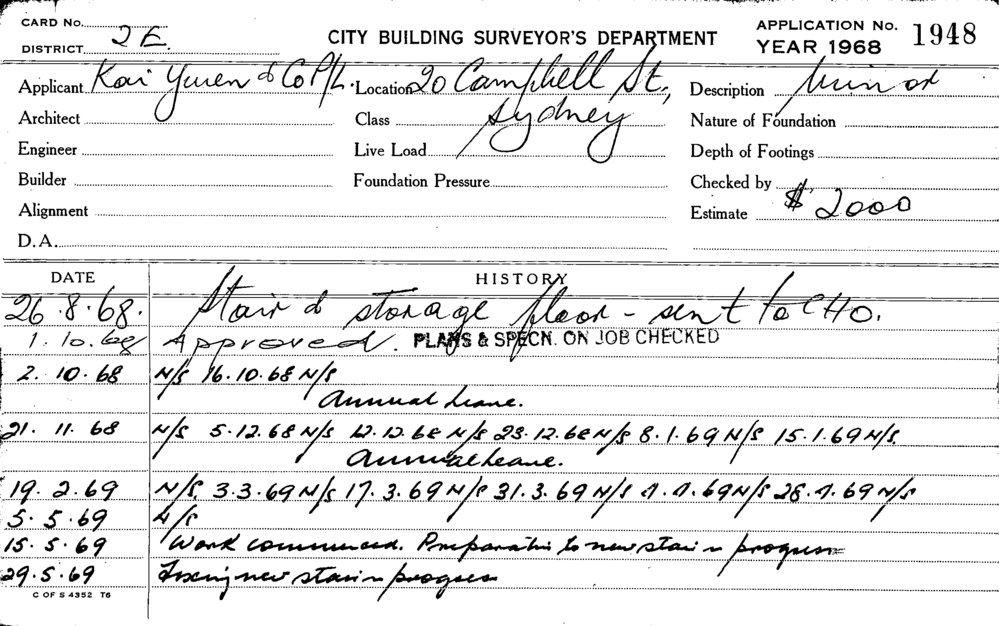 CARD No.
DISTRICT 2E.
CITY BUILDING SURVEYOR'S DEPARTMENT
APPLICATION No. 1948
YEAR 1968
Applicant Kai Yuen & Co P/L. Location 20 Campbell St., Description Minor
Architect Class Sydney Nature of Foundation
Engineer Live Load Depth of Footings
Builder Foundation Pressure Checked by
Alignment Estimate $2000
D.A.
DATE HISTORY
26.8.68. Stair & storage floor - sent to CHO.
1.10.68 Approved. PLANS & SPECN. ON JOB CHECKED
2.10.68 N/S 16.10.68 N/S
Annual Leave.
21.11.68 N/S 5.12.68 N/S 12.12.68 N/S 23.12.68 N/S 8.1.69 N/S 15.1.69 N/S
Annual Leave.
19.2.69 N/S 3.3.69 N/S 17.3.69 N/S 31.3.69 N/S 4.4.69 N/S 28.4.69 N/S
5.5.69 N/S
15.5.69 Work commenced. Preparation to new stair in progress
29.5.69 Fixing new stair in progress
C OF S 4352 T6